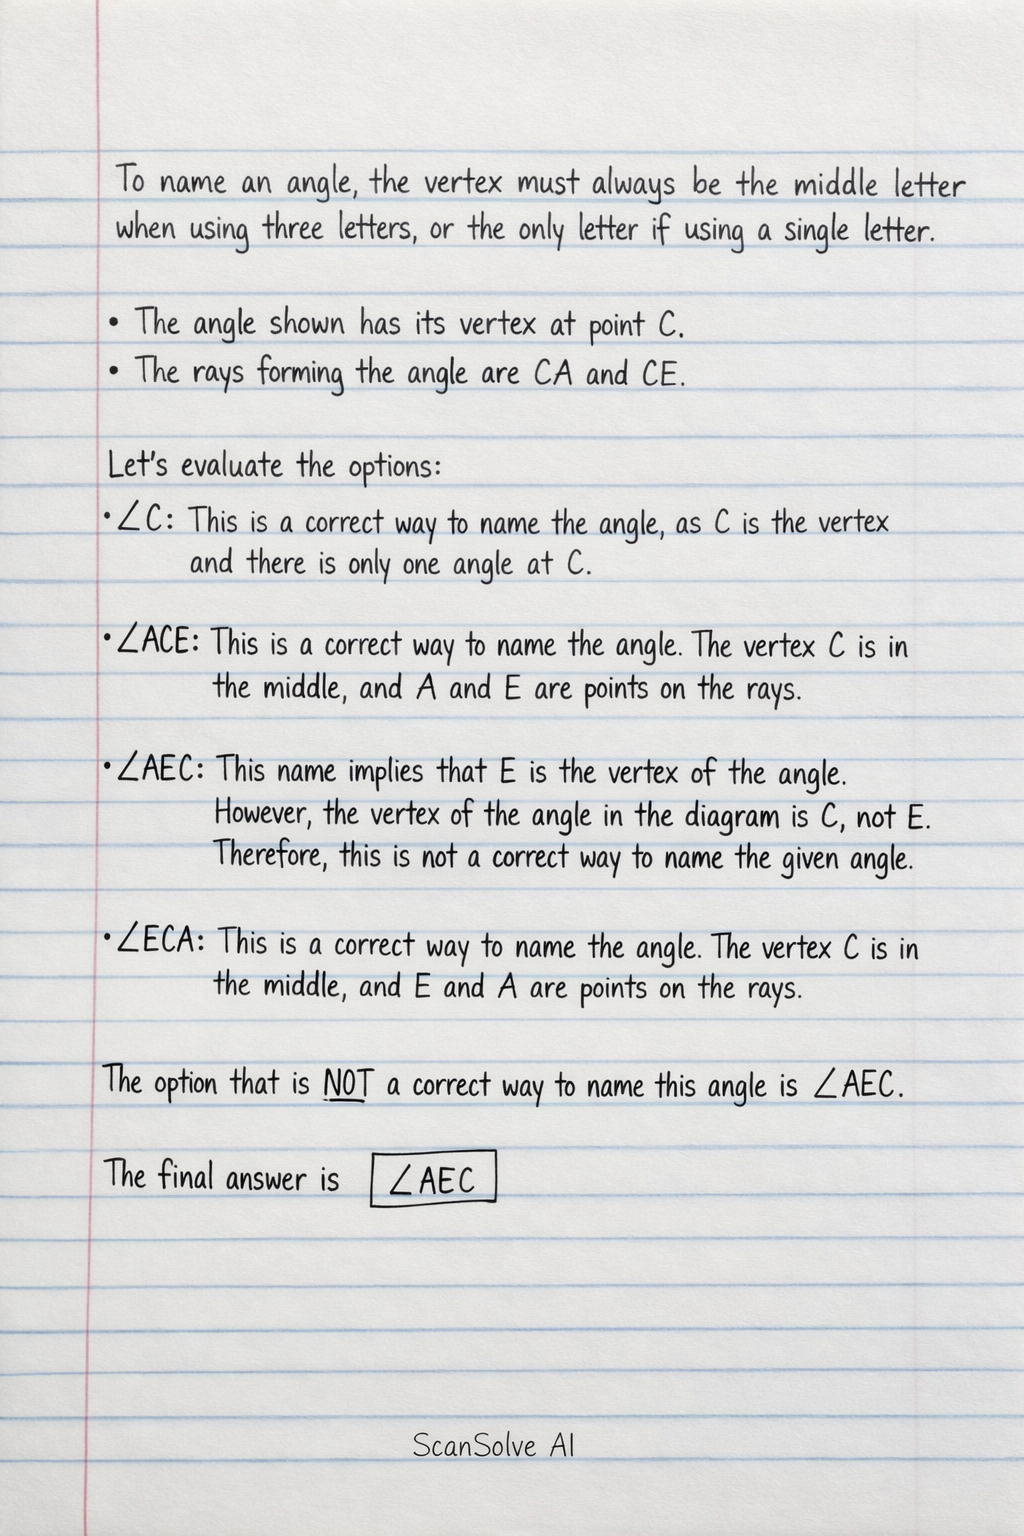 To name an angle, the vertex must always be the middle letter
when using three letters, or the only letter if using a single letter.
• The angle shown has its vertex at point C.
• The rays forming the angle are CA and CE.
Let's evaluate the options:
• ∠C: This is a correct way to name the angle, as C is the vertex
and there is only one angle at C.
• ∠ACE: This is a correct way to name the angle. The vertex C is in
the middle, and A and E are points on the rays.
• ∠AEC: This name implies that E is the vertex of the angle.
However, the vertex of the angle in the diagram is C, not E.
Therefore, this is not a correct way to name the given angle.
• ∠ECA: This is a correct way to name the angle. The vertex C is in
the middle, and E and A are points on the rays.
The option that is NOT a correct way to name this angle is ∠AEC.
The final answer is ∠AEC
ScanSolve AI